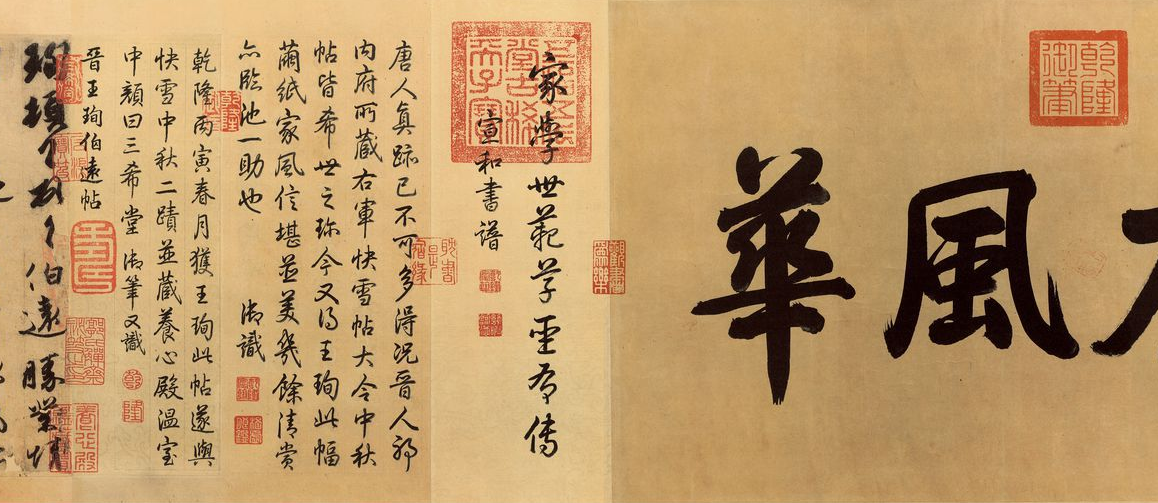 乾隆御筆
風華
五福五代堂古稀天子寶
家學世範草聖有傳
宣和書譜
唐人真跡已不可多得況晉人耶
內府所藏右軍快雪帖大令中秋
帖皆希世之珍今又得王珣此幅
繭紙家風信堪並美幾餘清賞
亦臨池一助也 御識
乾隆丙寅春月獲王珣此帖遂與
快雪中秋二蹟並藏養心殿溫室
中顏曰三希堂 御筆又識
乾隆
晉王珣伯遠帖
珣頓首頓首伯遠勝業情